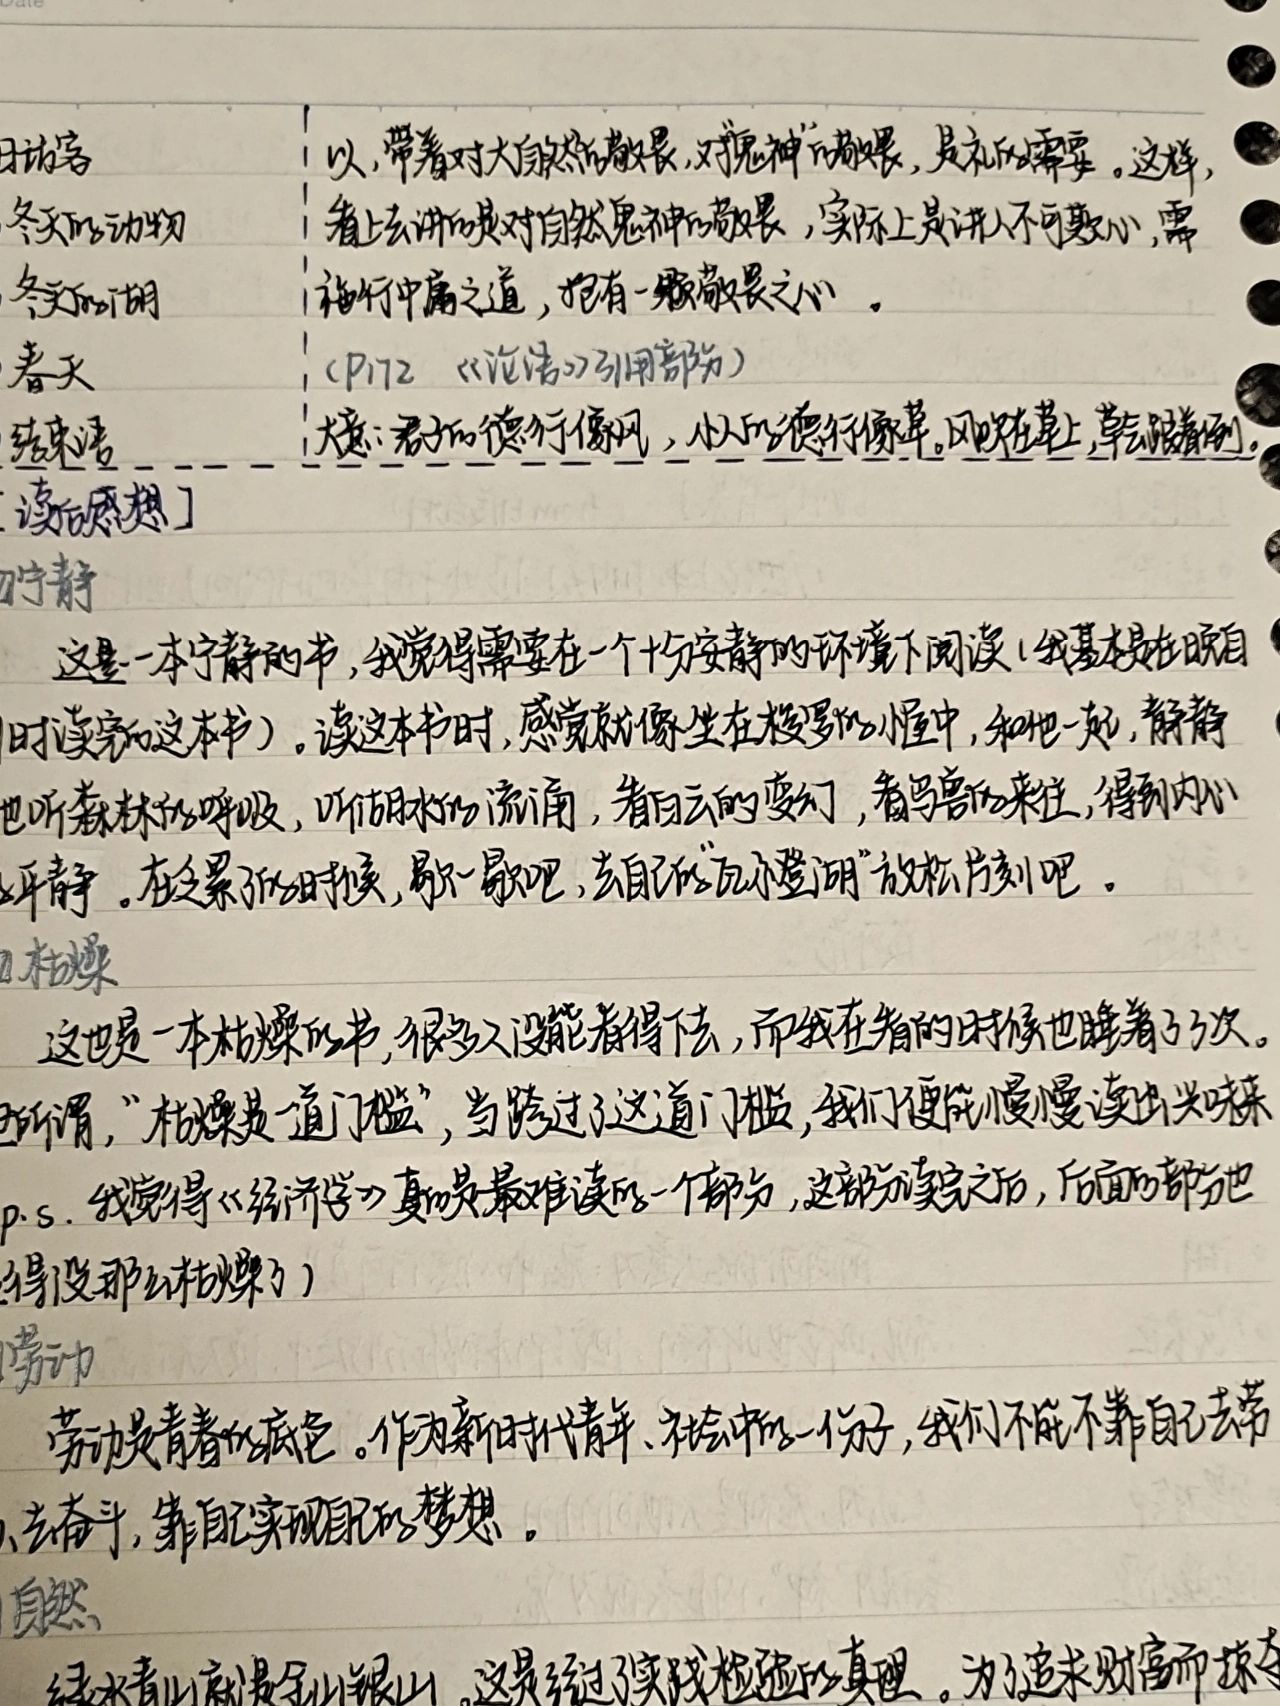 Date
日访客
以,带着对大自然的敬畏,对“鬼神”的敬畏,是礼的需要。这样,
冬天的动物
看上去讲的是对自然鬼神的敬畏,实际上是讲人不可欺心,需
冬天的湖
施行中庸之道,抱有一颗敬畏之心。
春天
(P172 《论语》引用部分)
结束语
大意:君子的德行像风,小人的德行像草。风吹在草上,草会跟着倒。
[读后感想]
宁静
这是一本宁静的书,我觉得需要在一个十分安静的环境下阅读(我基本是在晚自
习时读完的这本书)。读这本书时,感觉就像坐在梭罗的小屋中,和他一起,静静
地听森林的呼吸,听湖水的流涌,看白云的变幻,看鸟兽的来往,得到内心
的平静。在乏累了的时候,歇一歇吧,去自己的“瓦尔登湖”放松片刻吧。
枯燥
这也是一本枯燥的书,很多人没能看得下去,而我在看的时候也睡着了3次。
所谓,“枯燥是一道门槛”,当跨过了这道门槛,我们便能慢慢读出兴味来
p.s. 我觉得《经济学》真的是最难读的一个部分,这部分读完之后,后面的部分也
觉得没那么枯燥了)
劳动
劳动是青春的底色。作为新时代青年、社会中的一份子,我们不能不靠自己去劳
、去奋斗,靠自己实现自己的梦想。
自然
绿水青山就是金山银山,这是经过了实践检验的真理。为了追求财富而掠夺